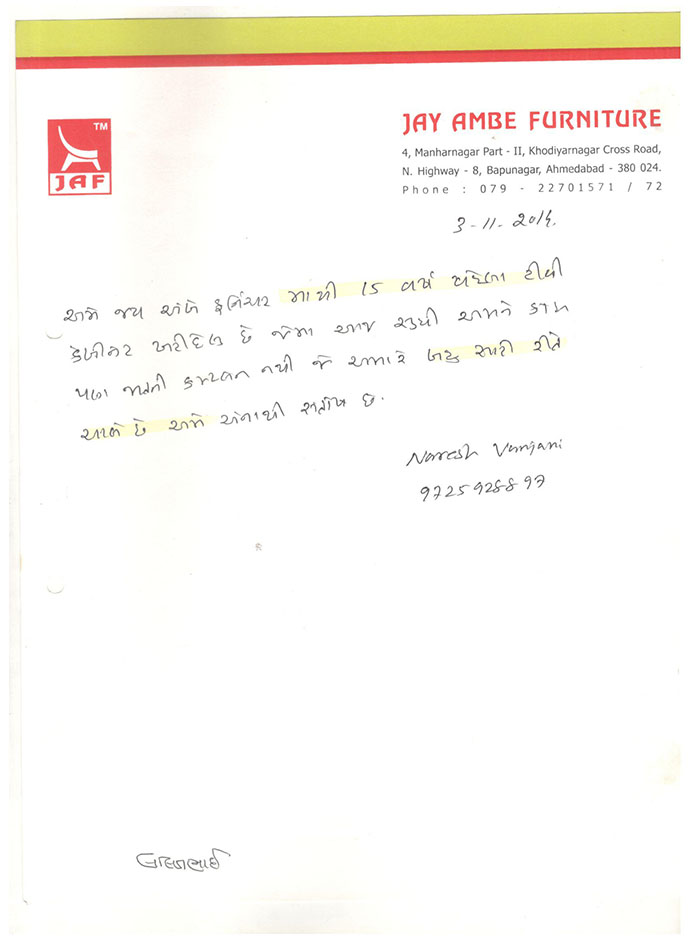 TM
JAF
JAY AMBE FURNITURE
4, Manharnagar Part - II, Khodiyarnagar Cross Road,
N. Highway - 8, Bapunagar, Ahmedabad - 380 024.
Phone : 079 - 22701571 / 72
3-11-2014.
અમે જય અંબે ફર્નિચર માંથી 15 વર્ષ પહેલા ટીવી
કેબીનેટ ખરીદેલુ છે જેમા આજ સુધી અમને કોઇ
પણ જાતની કમ્પલેન નથી જે અમારે બહુ સારી રીતે
ચાલે છે અમે એનાથી સંતોષ છે.
Naresh Vanjani
9725928897